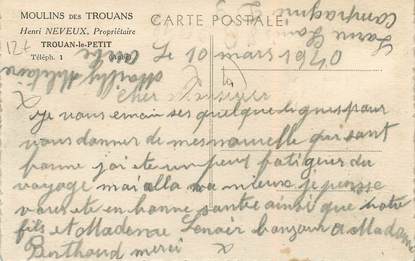 MOULINS DES TROUANS
Henri NEVEUX, Propriétaire
TROUAN-le-PETIT
Téléph. 1 (Aube)
CARTE POSTALE
12t
Mailly
Compagnie
Le 10 mars 1940
Cher Monsieur
je vous emois ses quelque lignes pour
vous donner de mes nouvelle qui sont
bonne jai ete un peux fatiguer du
voyage mai alla va mieux je pense
vous ete en bonne santée ainsi que votre
fils et Madame Lenoir bonjour a Madame
Berthaud merci